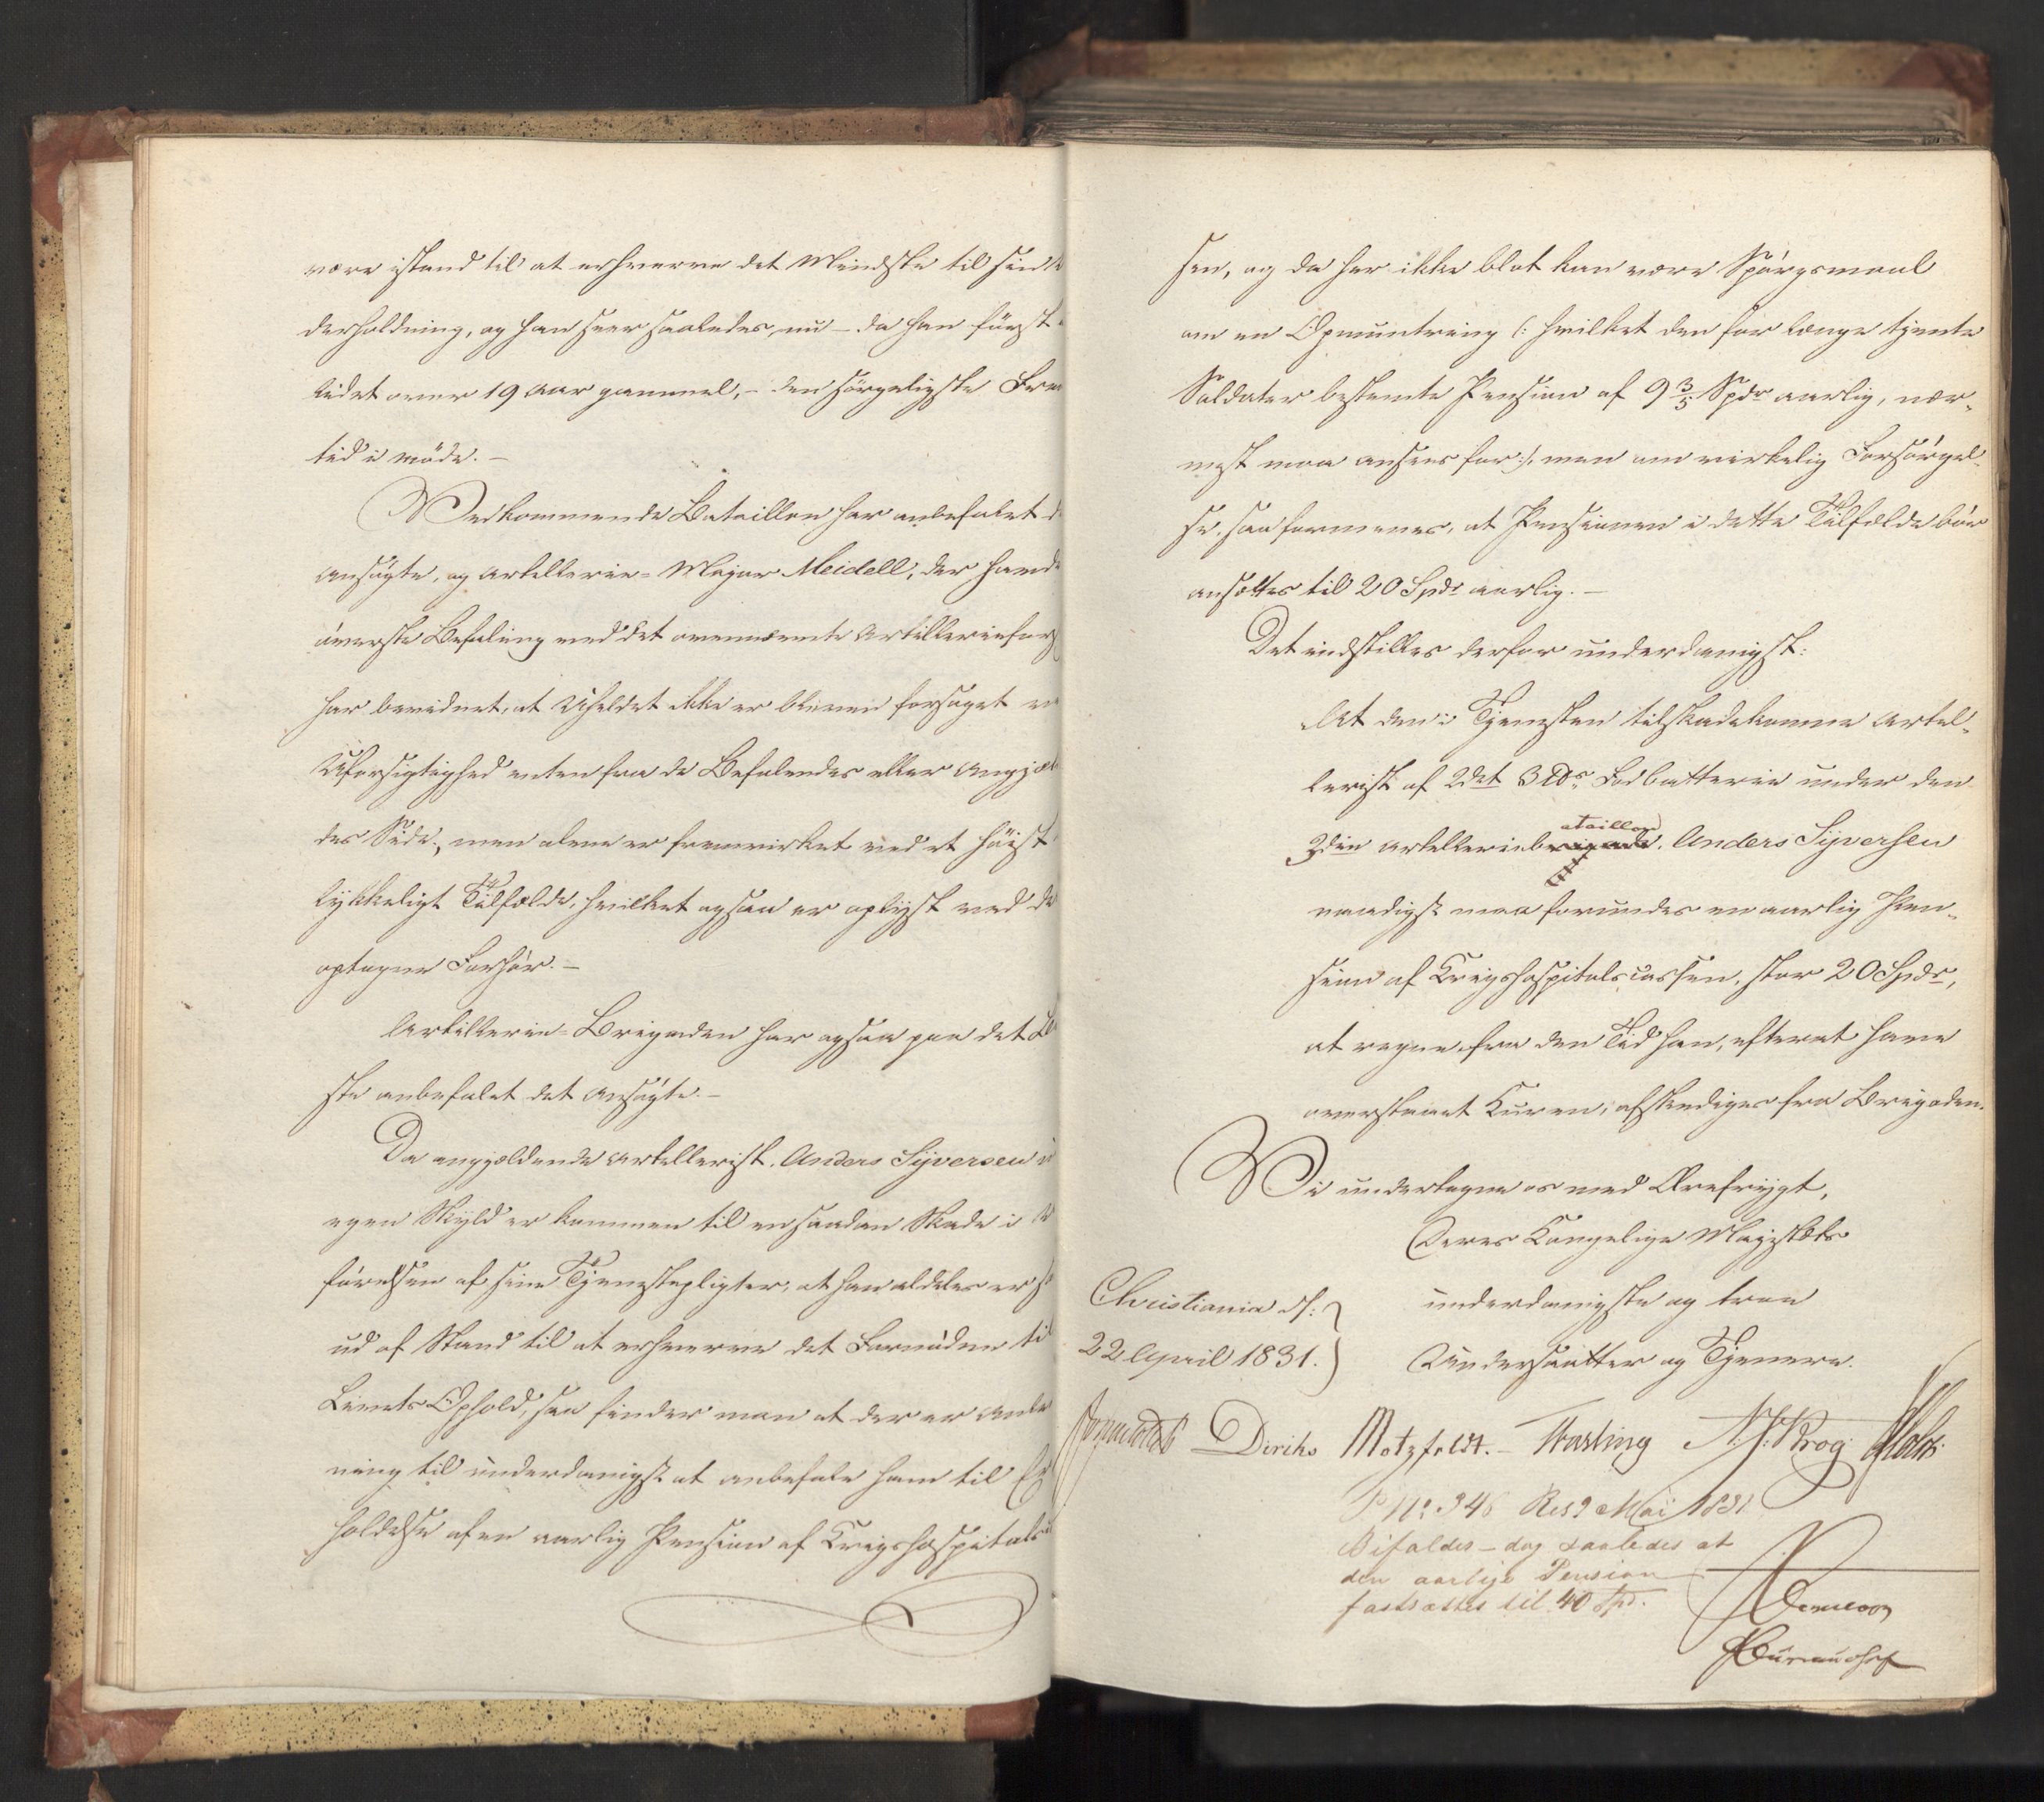 være istand til at erhverve det Mindste til sin
derholdning, og han seer saaledes nu – da han først
lidet over 19 Aar gammel, – den sørgeligste Frem
tid i møde. –
Vedkommende Bataillon har anbefalet d
Ansøgte, og Artillerie-Major Meidell, der havde
øverste Befaling med det ovennævnte Artillerieforsø
har bevidnet, at Uheldet ikke er bleven forsaget ve
Uforsigtighed enten fra de Befalendes eller Angjæl
des Side, men alene er fremvirket ved et høist
lykkeligt Tilfælde, hvilket ogsaa er oplyst ved de
optagne Forhør. –
Artillerie-Brigaden har ogsaa paa det Be
ste anbefalet det Ansøgte. –
Da angjældende Artillerist, Anders Syversen
egen Skyld er kommen til en saadan Skade i
førelsen af sine Tjenestepligter, at han aldeles er
ud af Stand til at erhverve det Fornødne til
Livets Ophold, saa finder man at der er Anled
ning til underdanigst at anbefale ham til Er
holdelse af en aarlig Pension af Krigshospitals
sen, og da her ikke blot kan være Spørgsmaal
om en Opmuntring (: hvilket den for længe tjente
Soldater bestemte Pension af 9 3/5 Spdr aarlig, nær-
mest maa ansees for :), men om virkelig Forsørgel-
se, saa formenes, at Pensionen i dette Tilfælde bør
ansættes til 20 Spdr aarlig. –
Det indstilles derfor underdanigst:
At den i Tjenesten tilskadekomne Artil-
lerist af 2det 3 Fodbatterie under den
3die Artilleriebataillon, Anders Syversen
naadigst maa forundes en aarlig Pen-
sion af Krigshospitalscassen, stor 20 Spdr,
at regne fra den Tid han, efterat have
overstaaet Kuren, afskediges fra Brigaden.
Vi undertegne os med Ærefrygt,
Deres Kongelige Majestæts
Christiania d:
underdanigste og troe
22 April 1831.
Undersaatter og Tjenere.
Diriks Motzfeldt. N. J. Krog Holst
P No 346 Res 9 Mai 1831
Bifaldes – dog saaledes at
den aarlige Pension
fastsættes til 40 Spd.